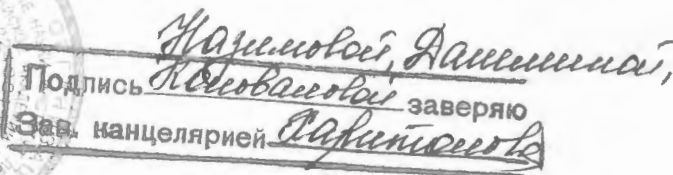 Назимовой, Данилиной,
Подпись Коноваловой заверяю
Зав. канцелярией Харитонова